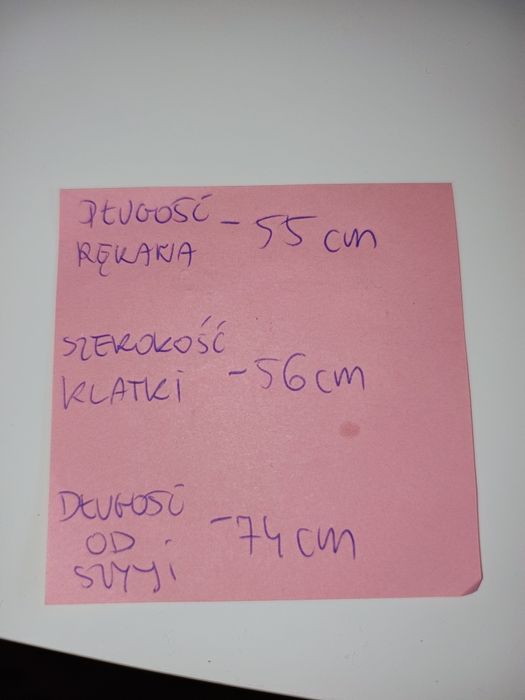 DŁUGOŚĆ
RĘKAWA - 55 cm
SZEROKOŚĆ
KLATKI - 56 cm
DŁUGOŚĆ
OD - 74 cm
SZYJI